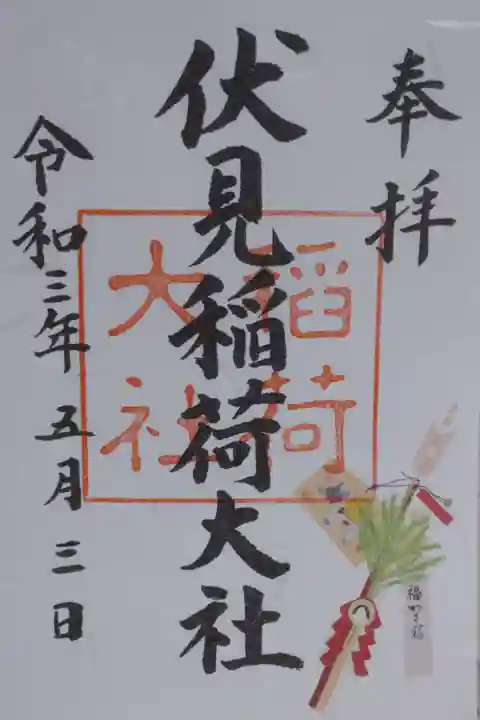 奉拝
伏見稲荷大社
稲荷
大社
令和三年 五月三日